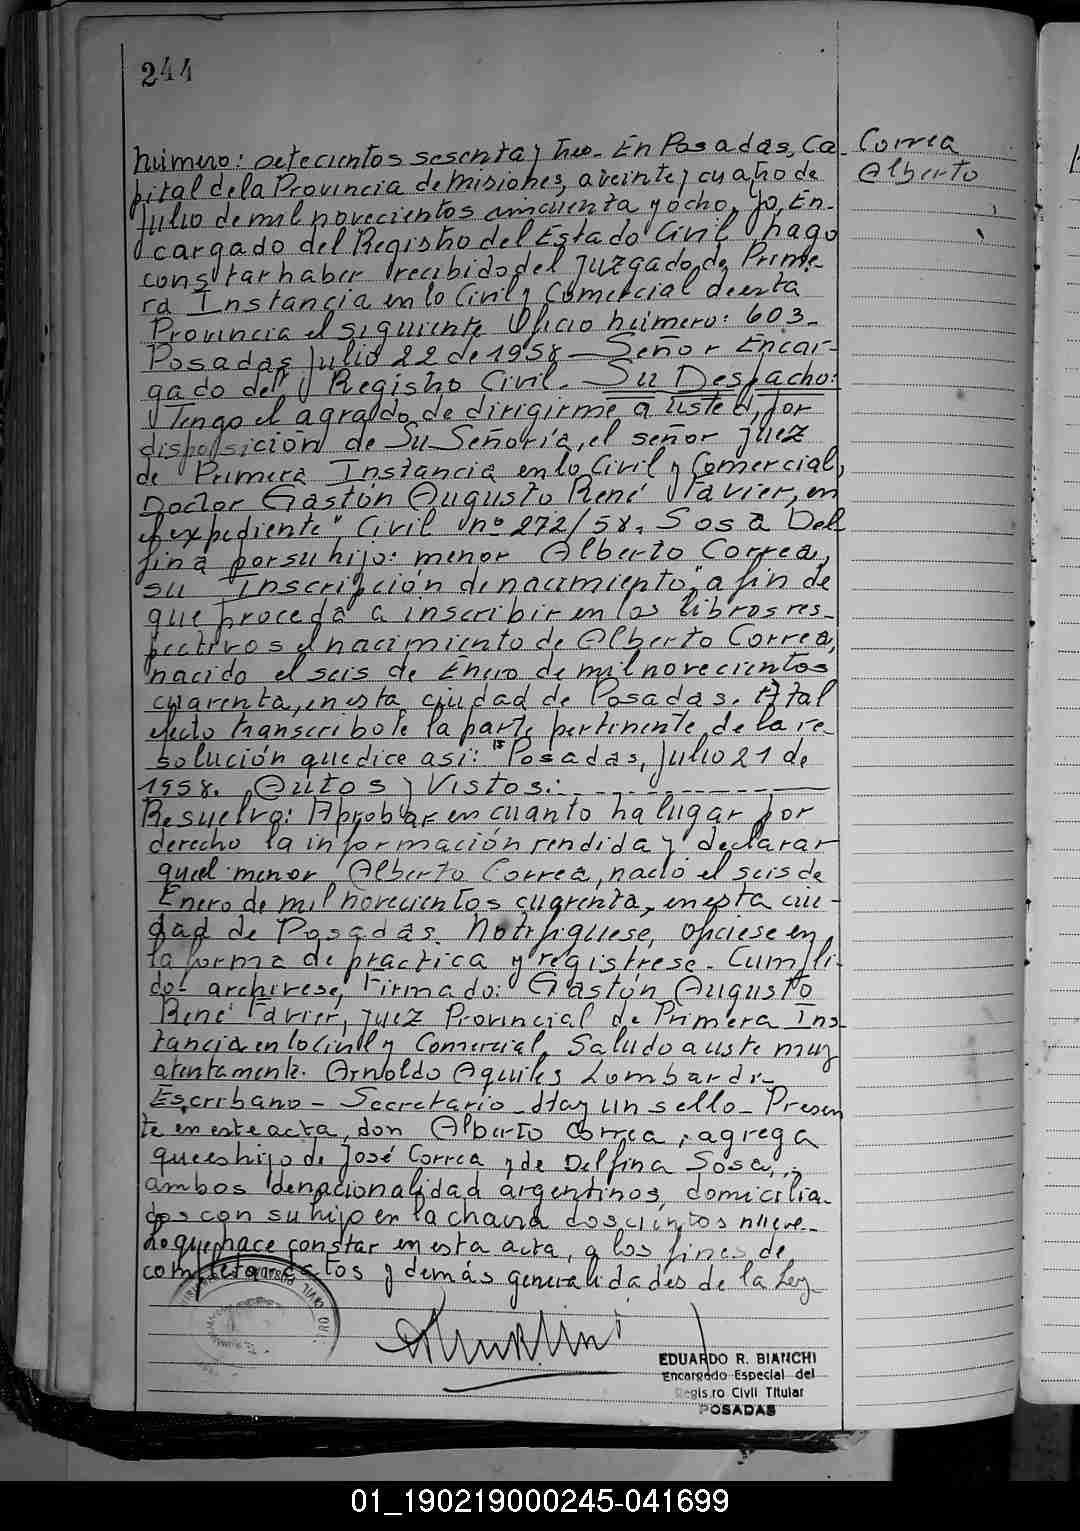 244
Correa
Alberto
Número: setecientos sesenta y tres. En Posadas, Ca-
pital de la Provincia de Misiones, a veinte y cuatro de
Julio de mil novecientos cincuenta y ocho, yo, En-
cargado del Registro del Estado Civil hago
constar haber recibido del Juzgado de Prime-
ra Instancia en lo Civil y Comercial de esta
Provincia el siguiente Oficio número: 603-
Posadas Julio 22 de 1958 - Señor Encar-
gado del Registro Civil. Su Despacho:
Tengo el agrado de dirigirme a usted, por
disposición de Su Señoría, el señor Juez
de Primera Instancia en lo Civil y Comercial,
Doctor Gastón Augusto René Favier, en
el expediente "Civil nº 272/58. Sosa Del
fina por su hijo: menor Alberto Correa,
su Inscripción de nacimiento", a fin de
que proceda a inscribir en los libros res-
pectivos el nacimiento de Alberto Correa,
nacido el seis de Enero de mil novecientos
cuarenta, en esta ciudad de Posadas. A tal
efecto transcribole la parte pertinente de la re-
solución que dice así: "Posadas, Julio 21 de
1958. Autos y Vistos:
Resuelvo: Aprobar en cuanto ha lugar por
derecho la información rendida y declarar
que el menor Alberto Correa, nació el seis de
Enero de mil novecientos cuarenta, en esta ciu-
dad de Posadas. Notifíquese, ofíciese en
la forma de práctica y regístrese. Cumpli-
do archívese, Firmado: Gastón Augusto
René Favier, Juez Provincial de Primera Ins-
tancia en lo Civil y Comercial. Saludo a uste muy
atentamente. Arnoldo Aquiles Lombardi-
Escribano - Secretario - Hay un sello - Presen
te en este acta, don Alberto Correa, agrega
que es hijo de José Correa y de Delfina Sosa,
ambos de nacionalidad argentinos, domicilia-
dos con su hijo en la chacra doscientos nueve-
Lo que hace constar en esta acta, a los fines de
completar datos y demás generalidades de la Ley-
EDUARDO R. BIANCHI
Encargado Especial del
Registro Civil Titular
POSADAS
01_190219000245-041699